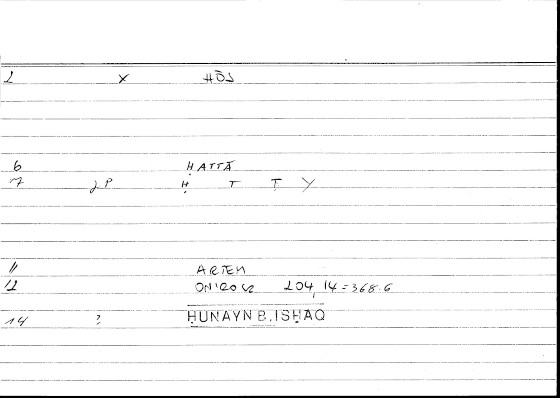 2 X ḤDṮ
6 ḤATTĀ
7 2P Ḥ T T Y
11 ARTEM
12 ONIROCR 204,14=368.6
14 ? ḤUNAYN B. ISḤĀQ